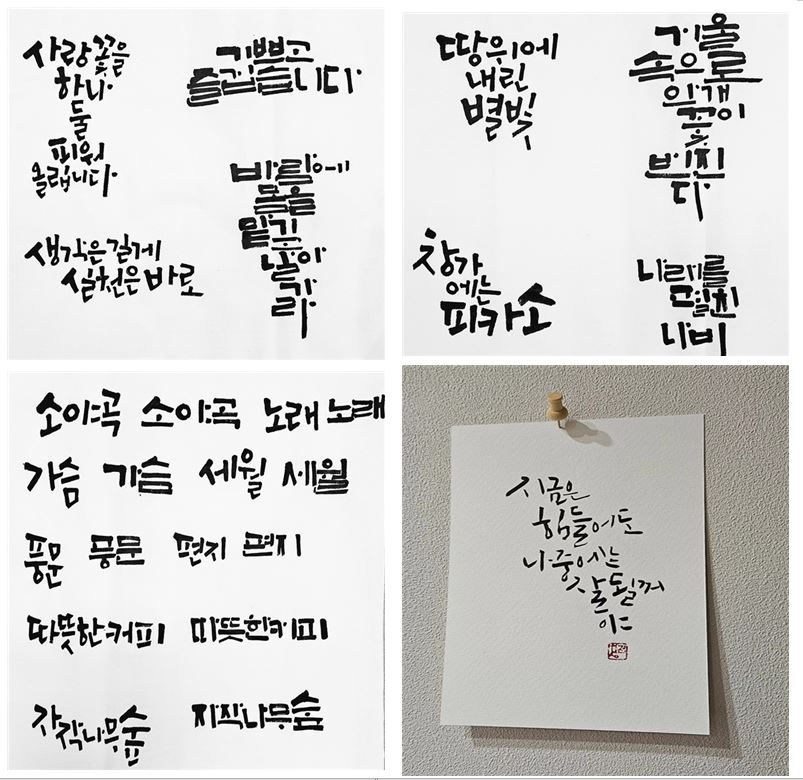 사랑꽃을
하나
둘
피워
올립니다
기쁘고
즐겁습니다
생각은 길게
실천은 바로
바람에
몸을
땅위에
내린
별빛
속으로
창가
에는
피카소
나래를
펼친
나비
소야곡 소야곡 노래 노래
가슴 가슴 세월 세월
풍문 풍문 편지 편지
따뜻한커피 따뜻한커피
자작나무숲 자작나무숲
지금은
힘들어도
나중에는
잘될꺼
야